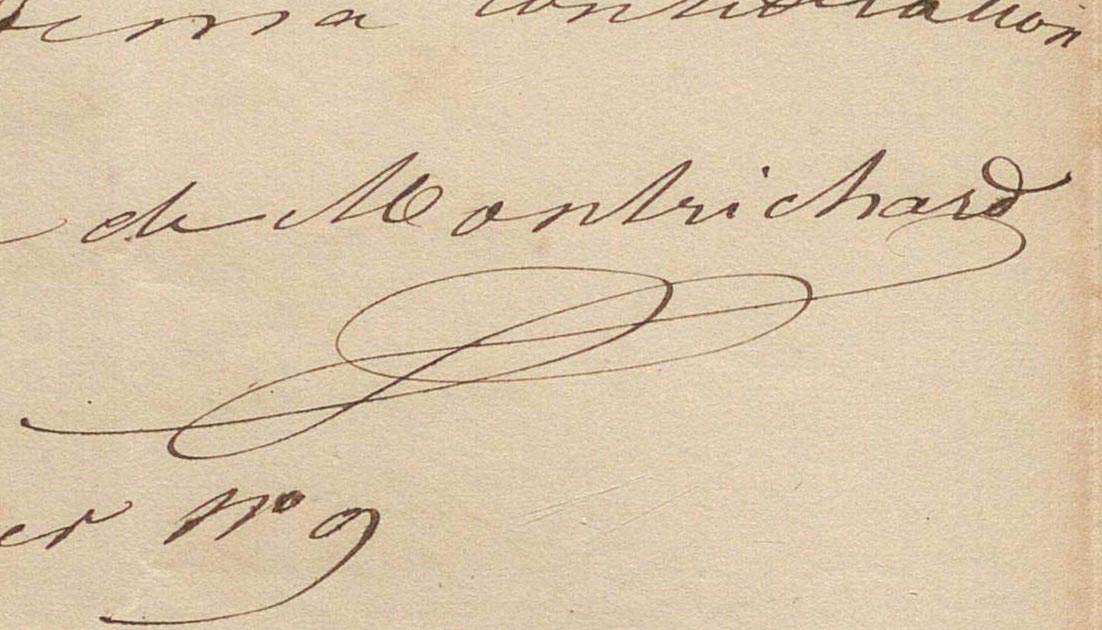 de ma considération
de Montrichard
er No 9